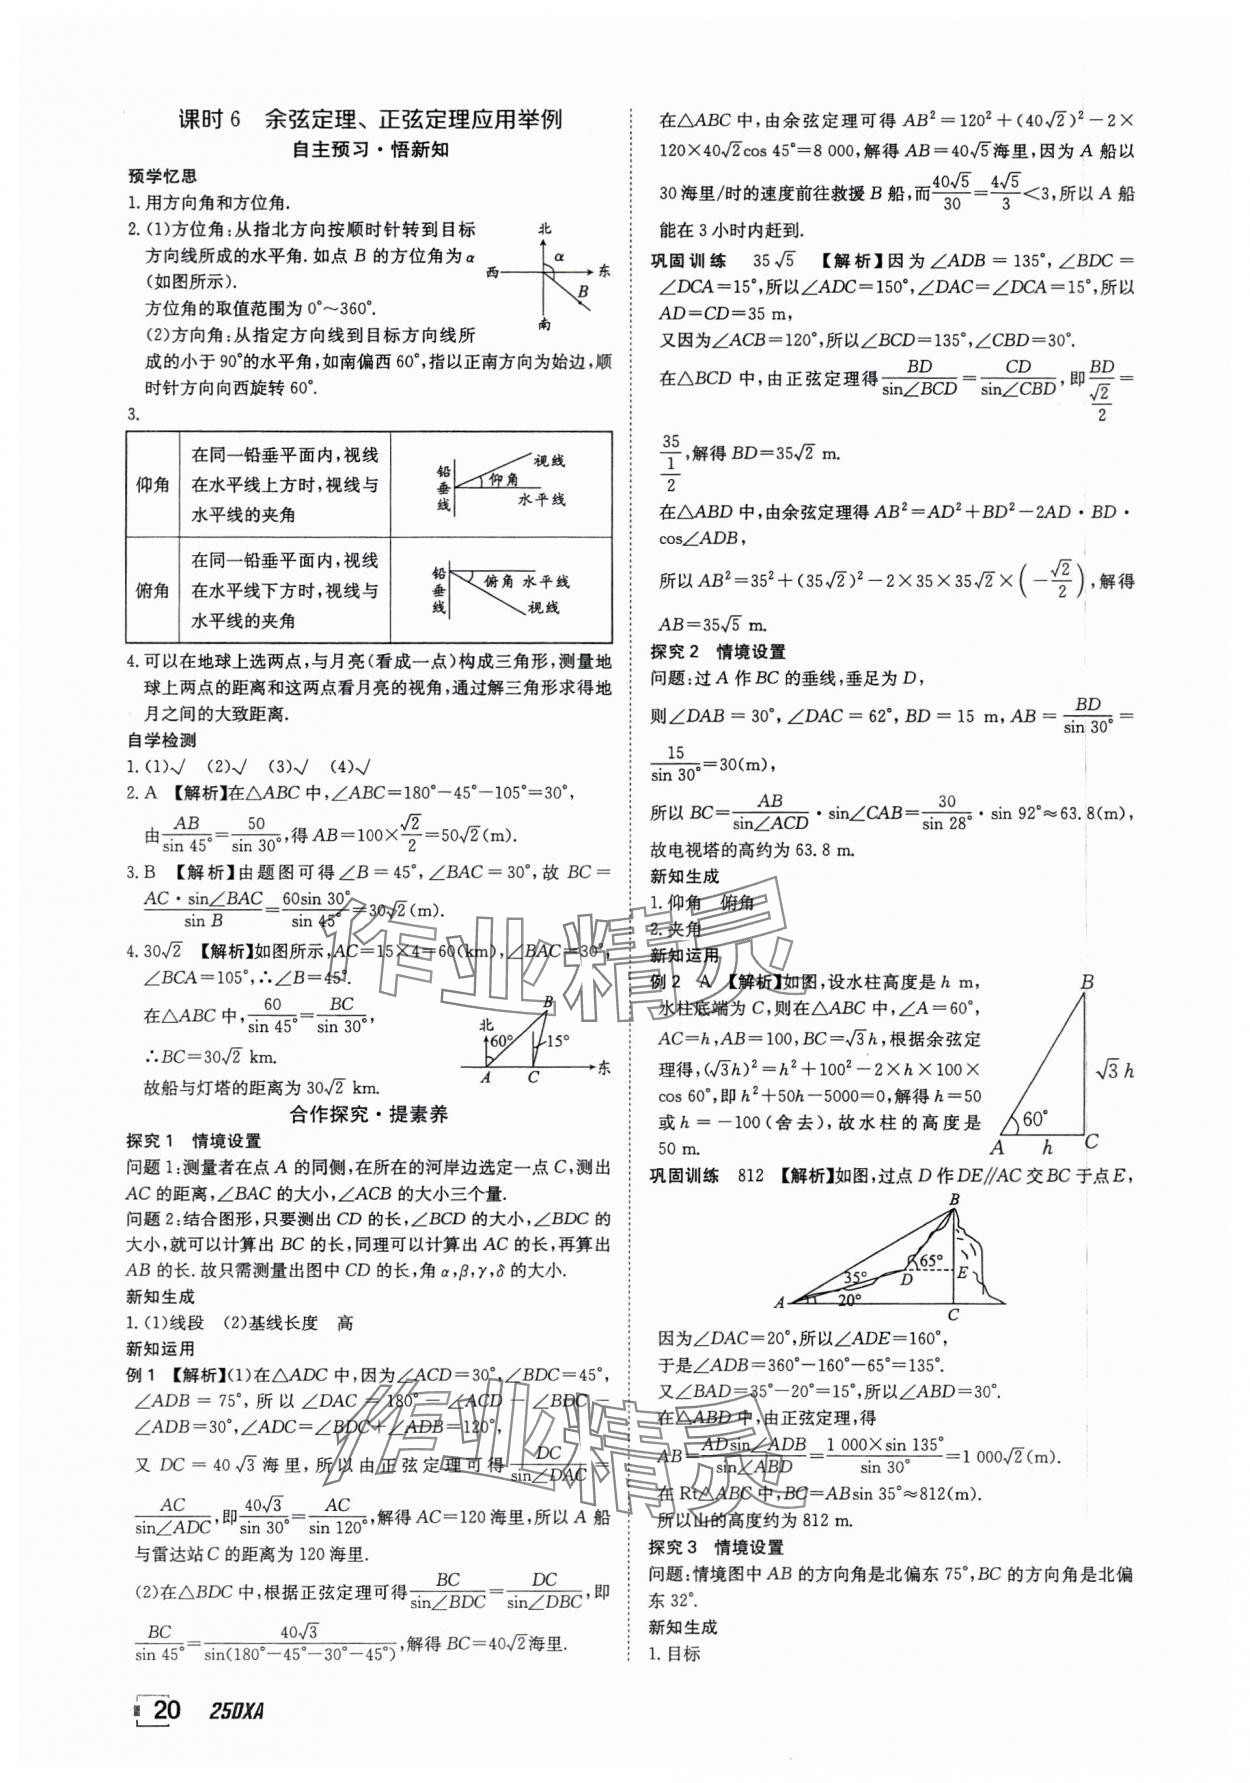 课时6　余弦定理、正弦定理应用举例
自主预习·悟新知
预学忆思
1.用方向角和方位角.
2.(1)方位角:从指北方向按顺时针转到目标
方向线所成的水平角.如点 B 的方位角为α
(如图所示).
方位角的取值范围为0°～360°.
(2)方向角:从指定方向线到目标方向线所
成的小于90°的水平角,如南偏西60°,指以正南方向为始边,顺
时针方向向西旋转60°.
北
α
西
东
B
南
3.
仰角
在同一铅垂平面内,视线
在水平线上方时,视线与
水平线的夹角
铅垂线
视线
仰角
水平线
俯角
在同一铅垂平面内,视线
在水平线下方时,视线与
水平线的夹角
铅垂线
俯角 水平线
视线
4.可以在地球上选两点,与月亮(看成一点)构成三角形,测量地
球上两点的距离和这两点看月亮的视角,通过解三角形求得地
月之间的大致距离.
自学检测
1.(1)√　(2)√　(3)√　(4)√
2.A　【解析】在△ABC中,∠ABC=180°-45°-105°=30°,
由AB/sin 45°=50/sin 30°,得AB=100×√2/2=50√2(m).
3.B　【解析】由题图可得∠B=45°,∠BAC=30°,故 BC=
AC·sin∠BAC/sin B=60sin 30°/sin 45°=30√2(m).
4.30√2　【解析】如图所示,AC=15×4=60(km),∠BAC=30°,
∠BCA=105°,∴∠B=45°.
在△ABC中,60/sin 45°=BC/sin 30°,
∴BC=30√2 km.
故船与灯塔的距离为30√2 km.
北
B
60°
15°
A
C
东
合作探究·提素养
探究1　情境设置
问题1:测量者在点 A 的同侧,在所在的河岸边选定一点C,测出
AC的距离,∠BAC的大小,∠ACB的大小三个量.
问题2:结合图形,只要测出CD的长,∠BCD的大小,∠BDC的
大小,就可以计算出 BC 的长,同理可以计算出 AC 的长,再算出
AB的长.故只需测量出图中CD的长,角α,β,γ,δ的大小.
新知生成
1.(1)线段　(2)基线长度　高
新知运用
例1　【解析】(1)在△ADC中,因为∠ACD=30°,∠BDC=45°,
∠ADB=75°,所以∠DAC=180°-∠ACD-∠BDC-
∠ADB=30°,∠ADC=∠BDC+∠ADB=120°,
又 DC=40√3海里,所以由正弦定理可得DC/sin∠DAC=
AC/sin∠ADC,即40√3/sin 30°=AC/sin 120°,解得AC=120海里,所以A船
与雷达站C的距离为120海里.
(2)在△BDC中,根据正弦定理可得BC/sin∠BDC=DC/sin∠DBC,即
BC/sin 45°=40√3/sin(180°-45°-30°-45°),解得BC=40√2海里.
20　25DXA
在△ABC中,由余弦定理可得AB²=120²+(40√2)²-2×
120×40√2cos 45°=8 000,解得AB=40√5海里,因为A船以
30海里/时的速度前往救援B船,而40√5/30=4√5/3<3,所以A船
能在3小时内赶到.
巩固训练　35√5　【解析】因为∠ADB=135°,∠BDC=
∠DCA=15°,所以∠ADC=150°,∠DAC=∠DCA=15°,所以
AD=CD=35 m,
又因为∠ACB=120°,所以∠BCD=135°,∠CBD=30°.
在△BCD中,由正弦定理得BD/sin∠BCD=CD/sin∠CBD,即BD/(√2/2)=
35/(1/2),解得BD=35√2 m.
在△ABD中,由余弦定理得AB²=AD²+BD²-2AD·BD·
cos∠ADB,
所以AB²=35²+(35√2)²-2×35×35√2×(-√2/2),解得
AB=35√5 m.
探究2　情境设置
问题:过A作BC的垂线,垂足为D,
则∠DAB=30°,∠DAC=62°,BD=15 m,AB=BD/sin 30°=
15/sin 30°=30(m),
所以BC=AB/sin∠ACD·sin∠CAB=30/sin 28°·sin 92°≈63.8(m),
故电视塔的高约为63.8 m.
新知生成
1.仰角　俯角
2.夹角
新知运用
例2　A　【解析】如图,设水柱高度是h m,
水柱底端为C,则在△ABC中,∠A=60°,
AC=h,AB=100,BC=√3h,根据余弦定
理得,(√3h)²=h²+100²-2×h×100×
cos 60°,即h²+50h-5000=0,解得h=50
或h=-100(舍去),故水柱的高度是
50 m.
B
√3 h
60°
A
h
C
巩固训练　812　【解析】如图,过点D作DE∥AC交BC于点E,
B
65°
35°
D
E
A
20°
C
因为∠DAC=20°,所以∠ADE=160°,
于是∠ADB=360°-160°-65°=135°.
又∠BAD=35°-20°=15°,所以∠ABD=30°.
在△ABD中,由正弦定理,得
AB=ADsin∠ADB/sin∠ABD=1 000×sin 135°/sin 30°=1 000√2(m).
在Rt△ABC中,BC=ABsin 35°≈812(m).
所以山的高度约为812 m.
探究3　情境设置
问题:情境图中AB的方向角是北偏东75°,BC的方向角是北偏
东32°.
新知生成
1.目标
作业精灵
作业精灵